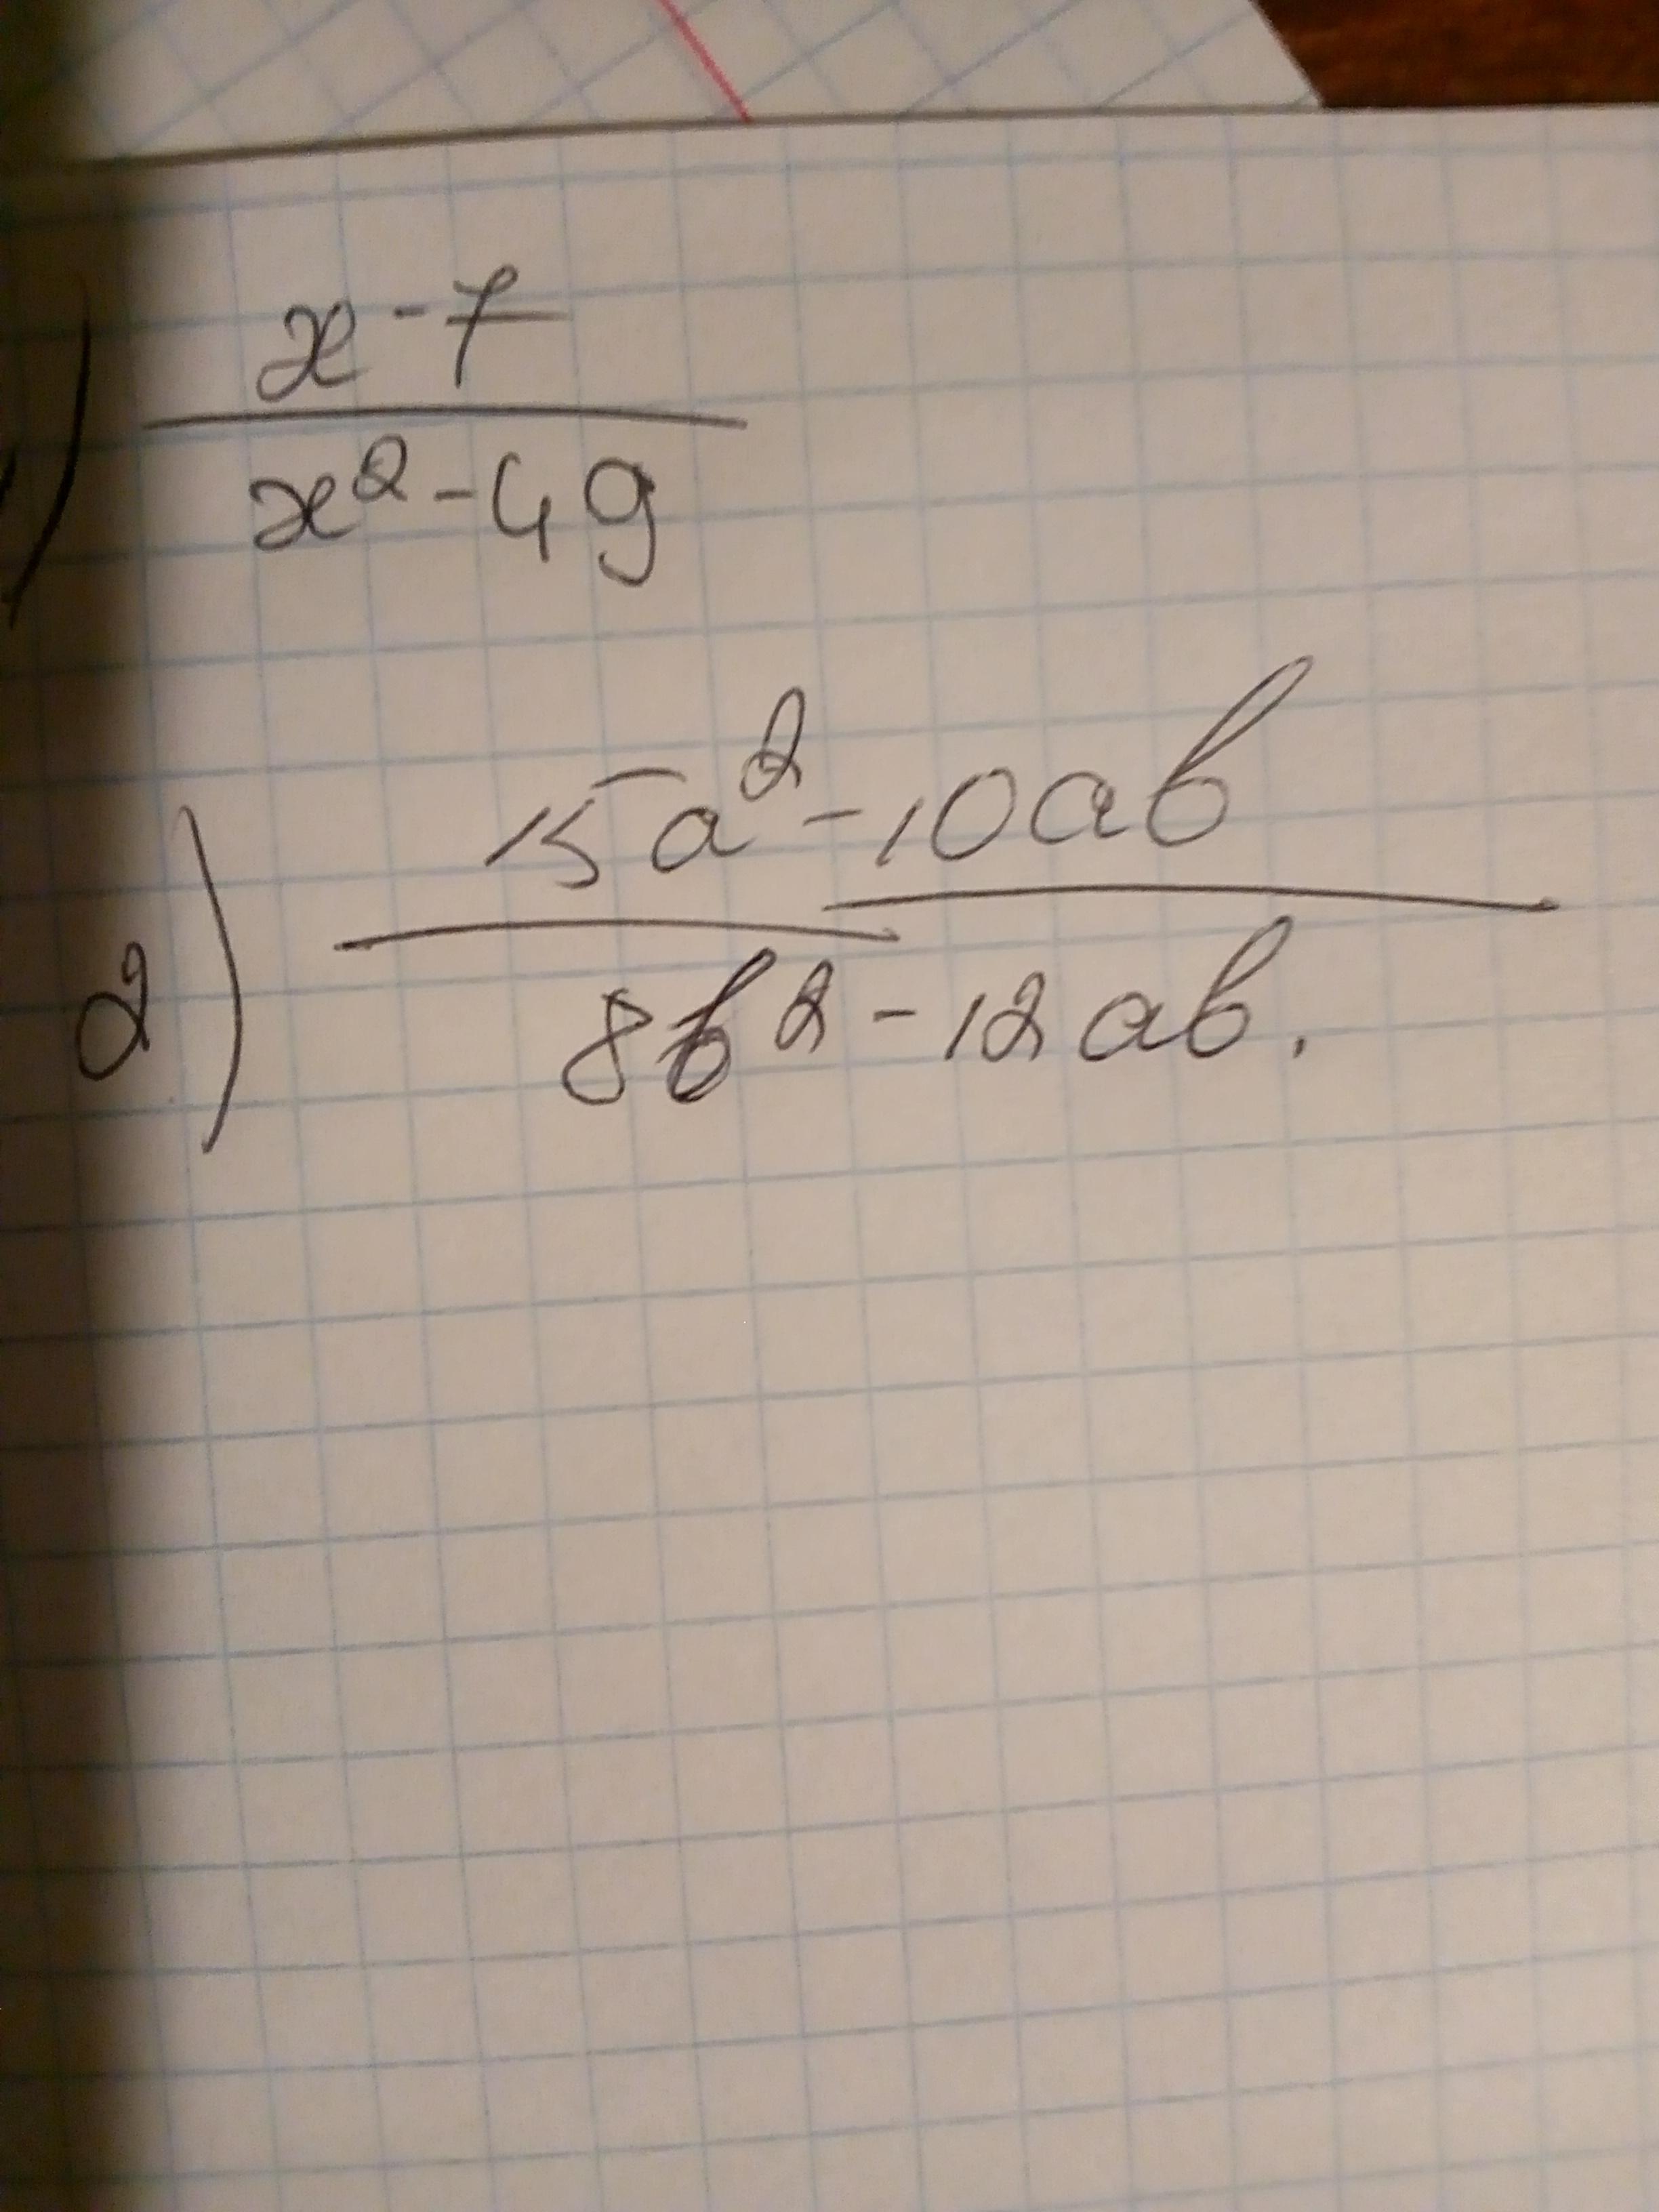 ) x - 7
x² - 49
2) 15a² - 10ab
8b² - 12ab.